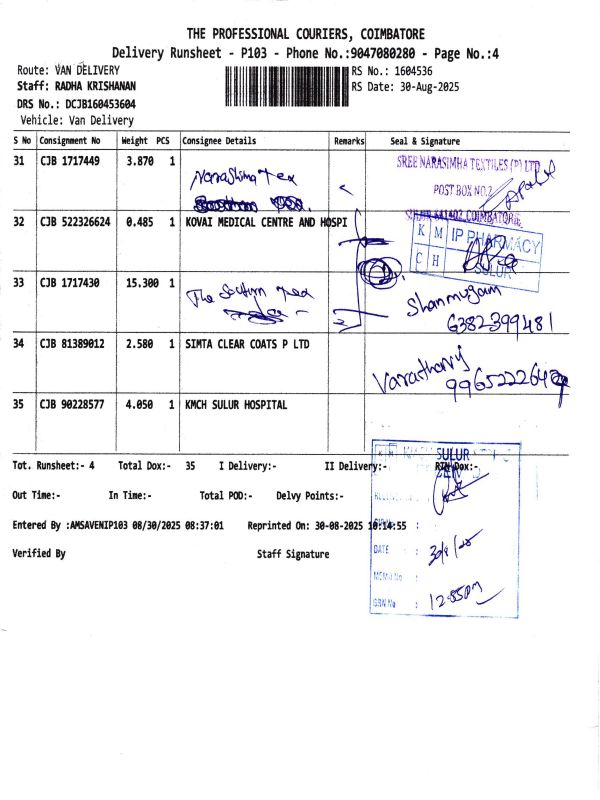 THE PROFESSIONAL COURIERS, COIMBATORE
Delivery Runsheet - P103 - Phone No.:9047080280 - Page No.:4
Route: VAN DELIVERY
RS No.: 1604536
Staff: RADHA KRISHANAN
RS Date: 30-Aug-2025
DRS No.: DCJB160453604
Vehicle: Van Delivery
S No Consignment No Weight PCS Consignee Details Remarks Seal & Signature
31 CJB 1717449 3.870 1 Narashima Tex
SREE NARASIMHA TEXTILES (P) LTD
POST BOX NO.2
SULUR 641402 COIMBATORE
32 CJB 522326624 0.485 1 KOVAI MEDICAL CENTRE AND HOSPI
K M C H IP PHARMACY
SULUR
33 CJB 1717430 15.300 1 The
Shanmugam
6382399481
34 CJB 81389012 2.580 1 SIMTA CLEAR COATS P LTD
35 CJB 90228577 4.050 1 KMCH SULUR HOSPITAL
SULUR
Tot. Runsheet:- 4 Total Dox:- 35 I Delivery:- II Delivery:- RTN Dox:-
Out Time:- In Time:- Total POD:- Delvy Points:-
Entered By :AMSAVENIP103 08/30/2025 08:37:01 Reprinted On: 30-08-2025 10:14:55
Verified By Staff Signature
DATE : 30/8/25
GRN No : 12.55pm